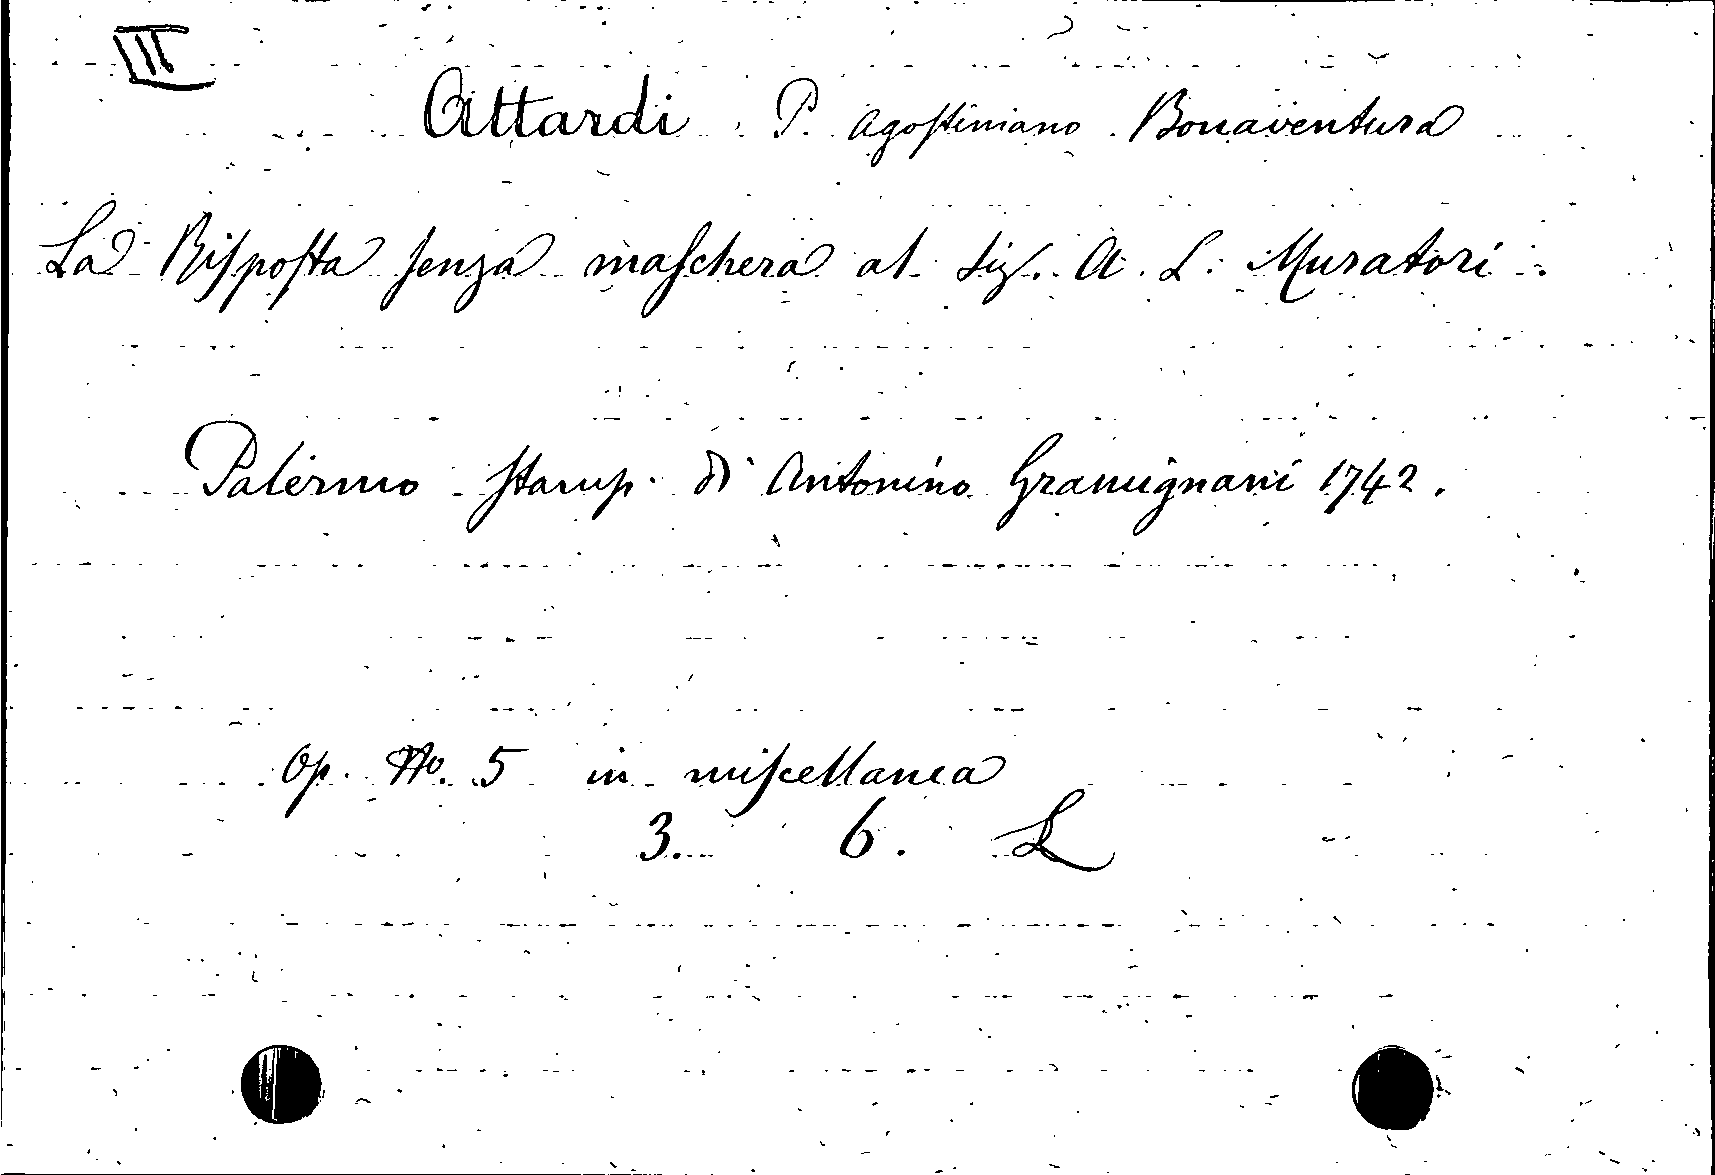 III
Attardi P. Agostiniano Bonaventura
La Risposta senza maschera al Sig. A. L. Muratori.
Palermo stamp. di Antonino Gramignani 1742.
Op. No. 5 in miscellanea
3. 6. L